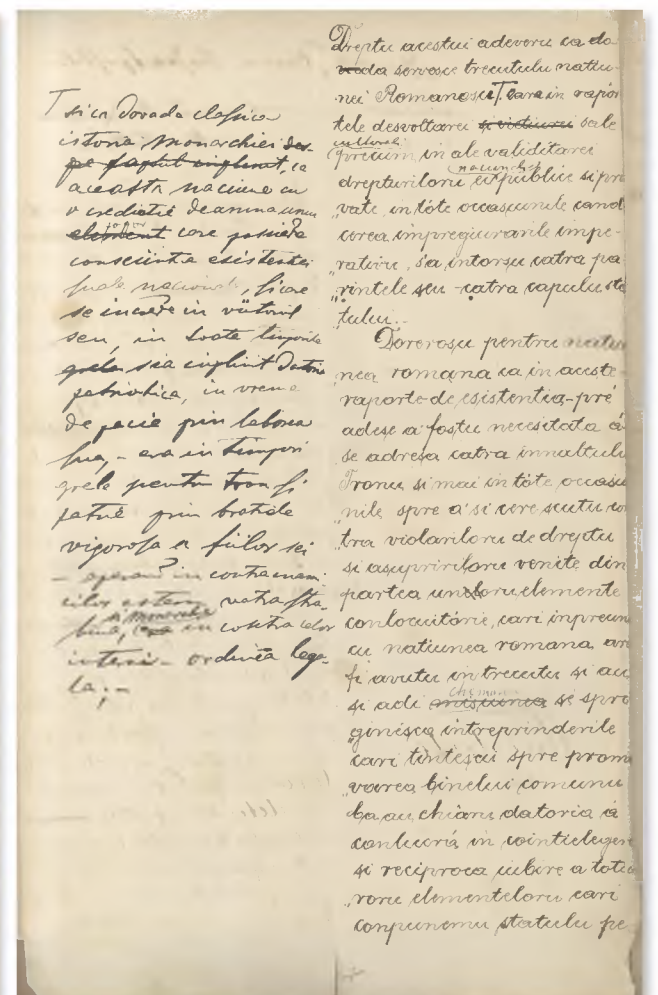 T si ca dovada classica
istoria monarchiei des-
pe faptul implinit, ca
aceasta naciune cu
o credintie deamna unui
element care posiede
consciintia esistentei
sale nacional, si care
se increde in viitorul
seu, in toate timpurile
grele sia implinit datoria
patriotica, in vreme
de pacie prin laborea
sua, – era in timpuri
grele pentru tron si
patrie prin bratiele
vigorosa a fiilor sei
– aperand in contra inami
cilor esterni vatra stra-
buna, si monarchia in contra celor
interni – ordinea lega-
la; –
Dreptu acestui adeveru ca do
vada servesce trecutulu natiu-
nei Romanesci T, care in rapor
tele desvoltarei si vietiurei sale
culturali
precum, in ale validitarei
nacionali
drepturiloru ei publice si pri
vate, in tóte occasiunile cand
cerea impregiurarile impe-
rativu, s'a intorsu catra pa
rintele seu – catra capulu sta
tului. –
Dorerosu pentru natiu
nea romana ca in aceste
raporte de esistentia – pré
adese a fostu necesitata á
se adresa catra innaltulu
Tronu si mai in tóte occasiu
nile spre a'si cere scutu co
tra violariloru de dreptu
si asupririloru venite din
partea unoru elemente
conlocuitórie, cari inpreun
cu natiunea romana ar
fi avutu in trecutu si au
chemarea
si adi missiunea se spri
ginisca intreprinderile
cari tintescu spre promo
varea binelui comunu
ba au chiaru datoria á
conlucrá in cointielegere
si reciproca iubire a totu
roru elementeloru cari
conpunemu statulu pe